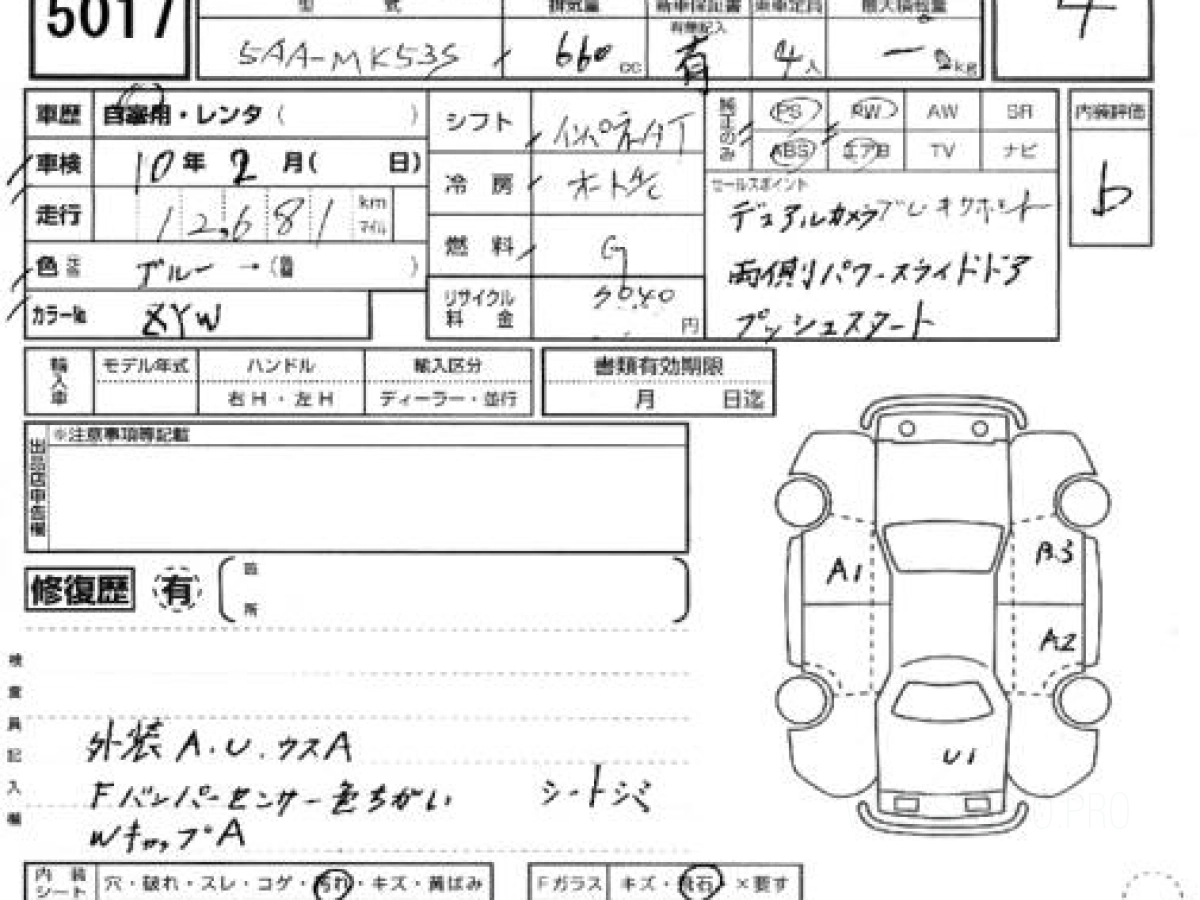 5017
型 式 排気量 新車保証書 乗車定員 最大積載量
有無記入
5AA-MK53S 660 cc 有 4人 ー kg
4
車歴 自家用・レンタ ( )
シフト インパネAT
純正のみ PS PW AW SR
ABS エアB TV ナビ
内装評価
b
車検 10年 2月( 日)
冷房 オートA/C
セールスポイント
デュアルカメラブレーキサポート
両側パワースライドドア
プッシュスタート
走行 12,681 km マイル
燃料 G
色 ブルー → ( )
リサイクル料金 円
カラー№ ZYW
輸入車 モデル年式 ハンドル 輸入区分
右H・左H ディーラー・並行
書類有効期限
月 日迄
出品店申告欄
※注意事項等記載
修復歴 有 箇所
検査員記入欄
外装 A.U.ウスA
Fバンパーセンサー色ちがい シートシミ
WキャップA
A1
A3
A2
U1
内装シート 穴・破れ・スレ・コゲ・汚れ・キズ・黄ばみ
Fガラス キズ・飛石・×要す